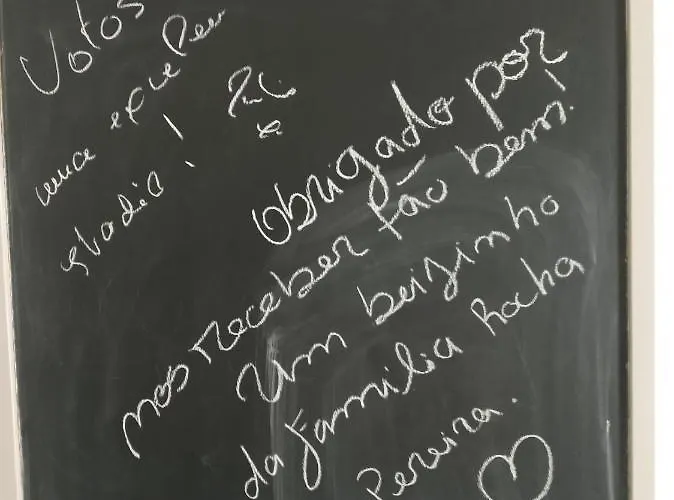 Votos
uma
estadia!
Obrigado por
nos receber tão bem!
Um beizinho
da família Rocha
Pereira.